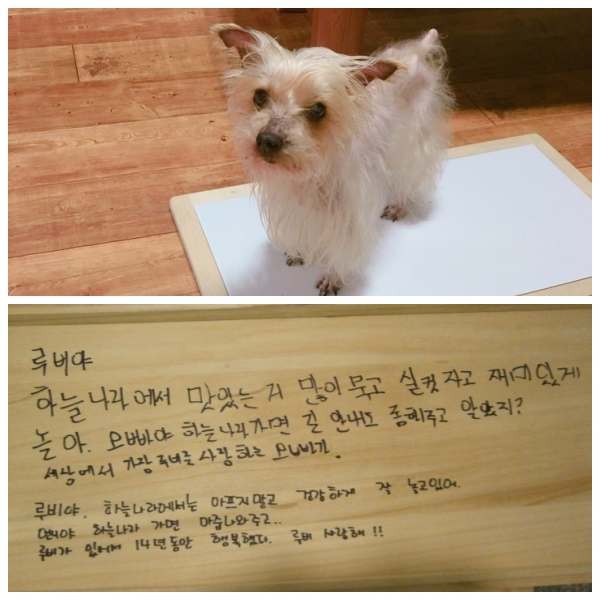 루비야
하늘나라에서 맛있는거 많이 묵고 실컷 자고 재미있게
놀아. 오빠야 하늘나라가면 길 안내도 좀해주고 알았지?
세상에서 가장 루비를 사랑하는 오빠가.
루비야. 하늘나라에서는 아프지말고 건강하게 잘 놀고있어.
언니야 하늘나라 가면 마중나와주고..
루비가 있어서 14년동안 행복했다. 루비 사랑해!!